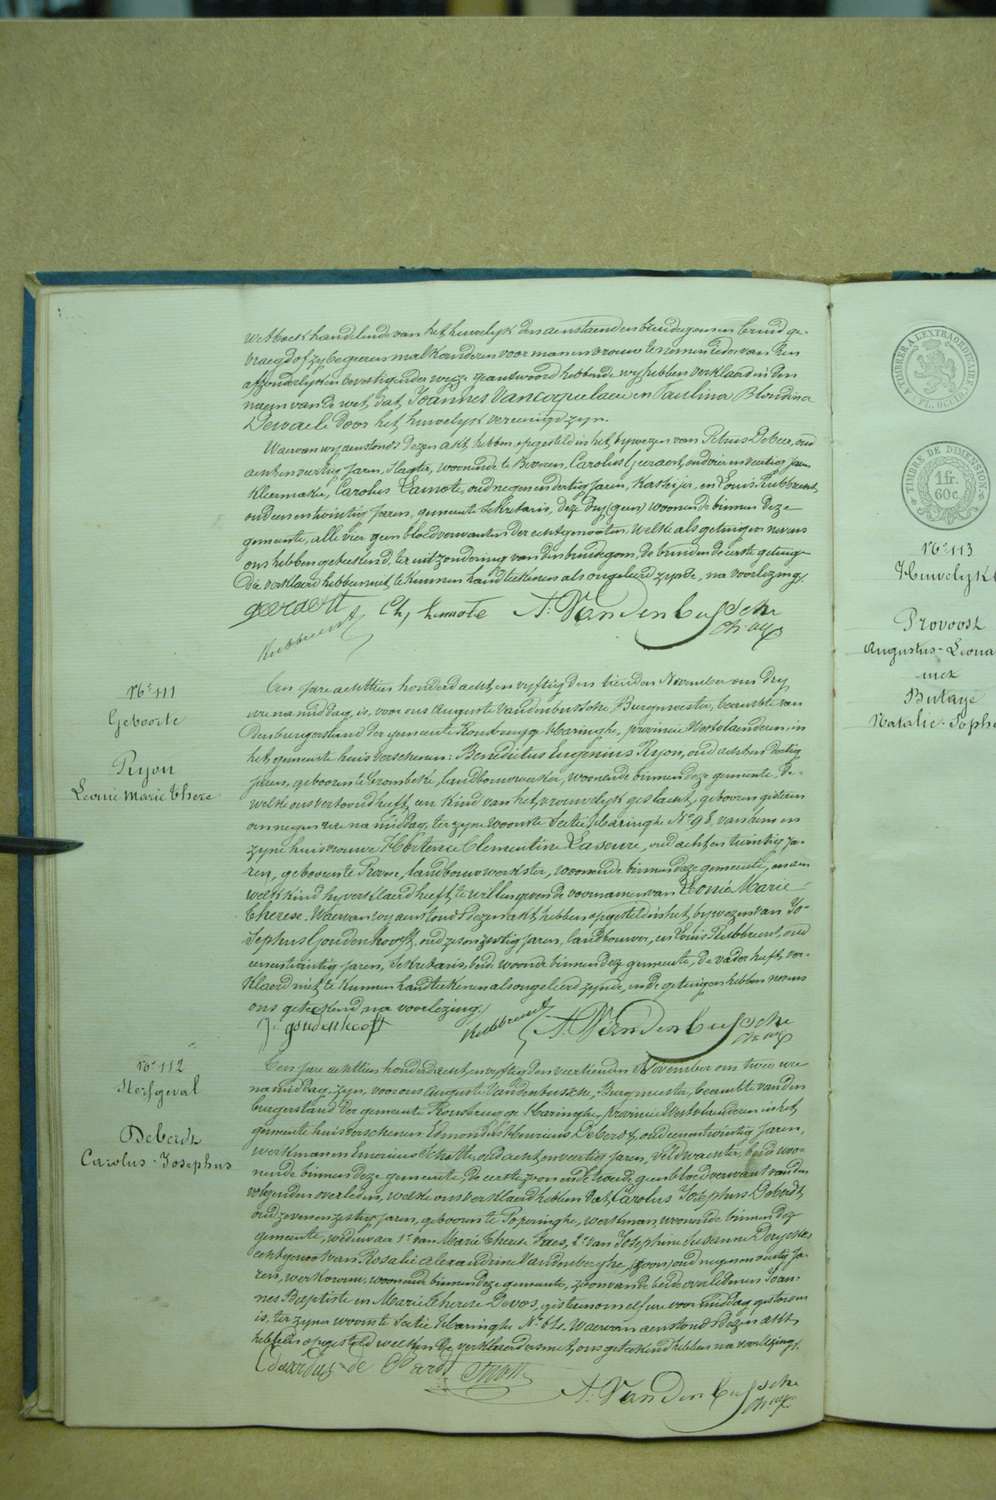 wetboek handelende van het huwelyk den aenstaenden bruidegom en bruid ge-
vraegd of zy begeeren malkanderen voor man en vrouw te nemen, ieder van hen
afzonderlyk en bevestigender wyze geantwoord hebbende, wy hebben verklaerd in den
naem van de wet, dat, Joannes Vancoquelaere en Paulina Blondina
Dewaele door het huwelyk vereenigd zyn.
Waervan wy aenstonds dezen akt hebben opgesteld in het bywezen van Petrus Debeer, oud
acht en veertig jaren, slagter, woonende te Beveren, Carolus Geeraert, oud vier en veertig jaren
kleermaker, Carolus Lamote, oud negen en dertig jaren, en Louis Rubbrecht,
oud een en twintig jaren, gemeente sekretaris, deze dry woonende binnen deze
gemeente, alle vier geen bloedverwanten der echtgenooten. Welke als getuigen nevens
ons hebben geteekend, ter uitzondering van den bruidegom, de bruid en de eerste getuige
die verklaerd hebben niet te kunnen handteekenen als ongeleerd zynde, na voorlezing.
geeraert Ch, Lamote A. Vandenbussche
Rubbrecht
N° 111
Geboorte
Ryon
Leonie Marie Therese
Een jare achttien honderd acht en vyftig den tienden November om dry
ure na middag, is, voor ons Auguste Vandenbussche Burgmeester, beambte van
den burgerstand der gemeente Rousbrugge Haringhe, provincie Westvlaenderen, in
het gemeente huis verschenen: Benedictus Eugenius Ryon, oud acht en dertig
jaren, geboren te Crombeke, landbouwwerker, woonende binnen deze gemeente, De-
welke ons vertoond heeft, een kind van het vrouwelyk geslacht, geboren gisteren
om negen ure na middag, ter zyne woonste sectie Haringhe N° 98, van hem en
zyne huisvrouwe Hortence Clementine Laseure, oud acht en twintig ja-
ren, geboren te Proven, landbouwwerkster, woonende binnen deze gemeente, en aen
welk kind hy verklaerd heeft, te willen geven de voornamen van Leonie Marie
Therese. Waervan wy aenstonds dezen akt hebben opgesteld in het bywezen van Jo-
sephus Goudenhooft, oud zes en zestig jaren, landbouwer, en Louis Rubbrecht, oud
een en twintig jaren, sekretaris, beide woonende binnen deze gemeente, de vader heeft ver-
klaerd niet te kunnen handteekenen als ongeleerd zynde, en de getuigen hebben nevens
ons geteekend na voorlezing.
J. goudenhooft Rubbrecht A. Vandenbussche
N° 112
Sterfgeval
Deberdt
Carolus-Josephus
Een jare achttien honderd acht en vyftig den veertienden November om twee ure
na middag, zyn, voor ons Auguste Vandenbussche, Burgmeester, beambte van den
burgerstand der gemeente Rousbrugge Haringhe, provincie Westvlaenderen in het
gemeente huis verschenen Edmondus Henricus Deberdt, oud een en twintig jaren,
werkman en oud acht en veertig jaren, veldwachter, beide woo-
nende binnen deze gemeente, de eerste zoon en de tweede geen bloedverwant van den
volgenden overleden, welke ons verklaerd hebben dat, Carolus Josephus Deberdt,
oud zeven en zestig jaren, geboren te Poperinghe, werkman, woonende binnen deze
gemeente, weduwaer 1° van Marie Therese Faes, 2° van Josephine Susanne Deryckere
echtgenoot van Rosalie Alexandrine Vandenberghe, oud negen en veertig ja-
ren, werkvrouw, woonende binnen deze gemeente, zoon van de beide overledenen Joan-
nes Baptiste en Marie Therese Devos, gisteren om elf ure voor middag, gestorven
is, ter zyne woonste sectie Haringhe N° 61. Waervan aenstonds dezen akt
hebben opgesteld welken de verklaerders met ons geteekend hebben na voorlezing.
Eduardus de Berdt A. Vandenbussche
TIMBRE A L'EXTRAORDINAIRE
FL. OCCID.
TIMBRE DE DIMENSION
1 fr.
60 c.
N° 113
Huwelyk
Provoost
Augustus-Leona
met
Butaye
Natalie-Sophi